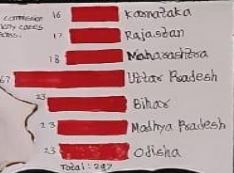 commission
16 Karnataka
17 Rajastan
18 Maharashtra
67 Uttar Pradesh
23 Bihar
23 Madhya Pradesh
23 Odisha
Total: 247